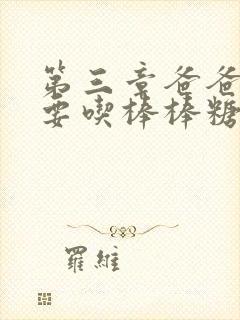 第三章爸爸
要喫棒棒糖
羅維